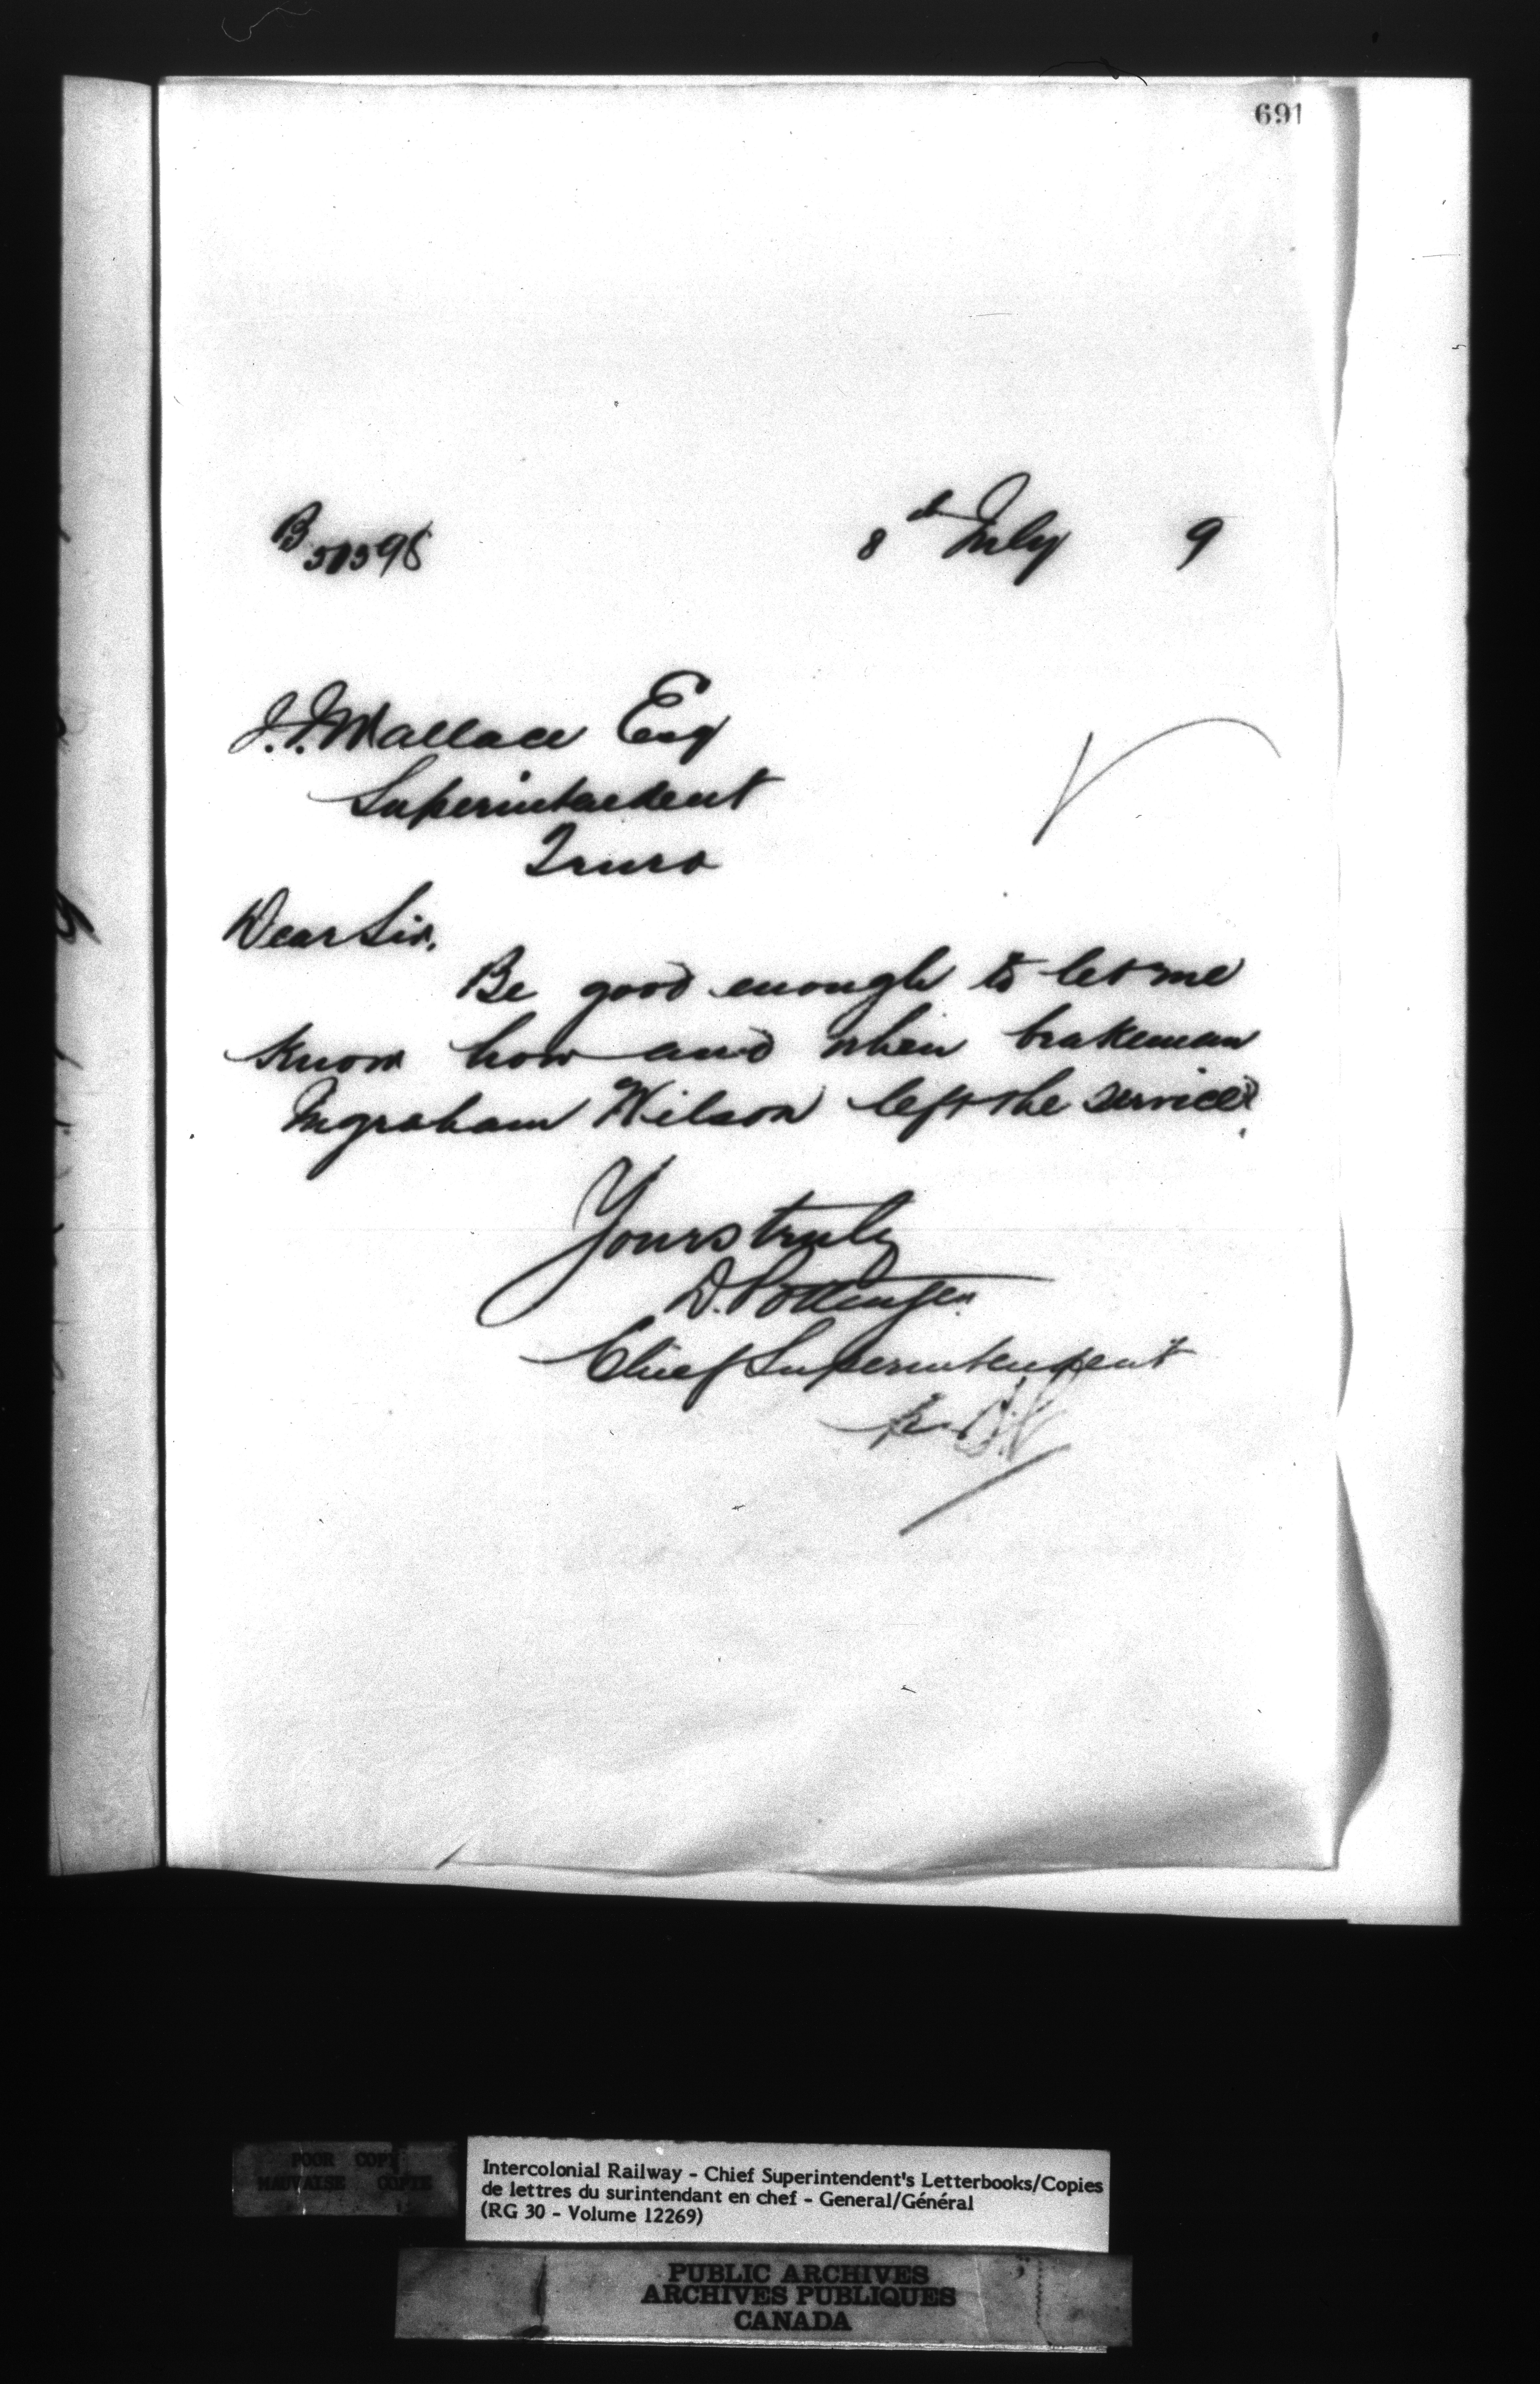 691
B 51598
8th July 9
J. J. Wallace Esq
Superintendent
Truro
Dear Sir,
Be good enough to let me
know how and when brakeman
Ingraham Wilson left the service.
Yours truly
D. Pottinger
Chief Superintendent
POOR COPY
MAUVAISE COPIE
Intercolonial Railway - Chief Superintendent's Letterbooks/Copies
de lettres du surintendant en chef - General/Général
(RG 30 - Volume 12269)
PUBLIC ARCHIVES
ARCHIVES PUBLIQUES
CANADA